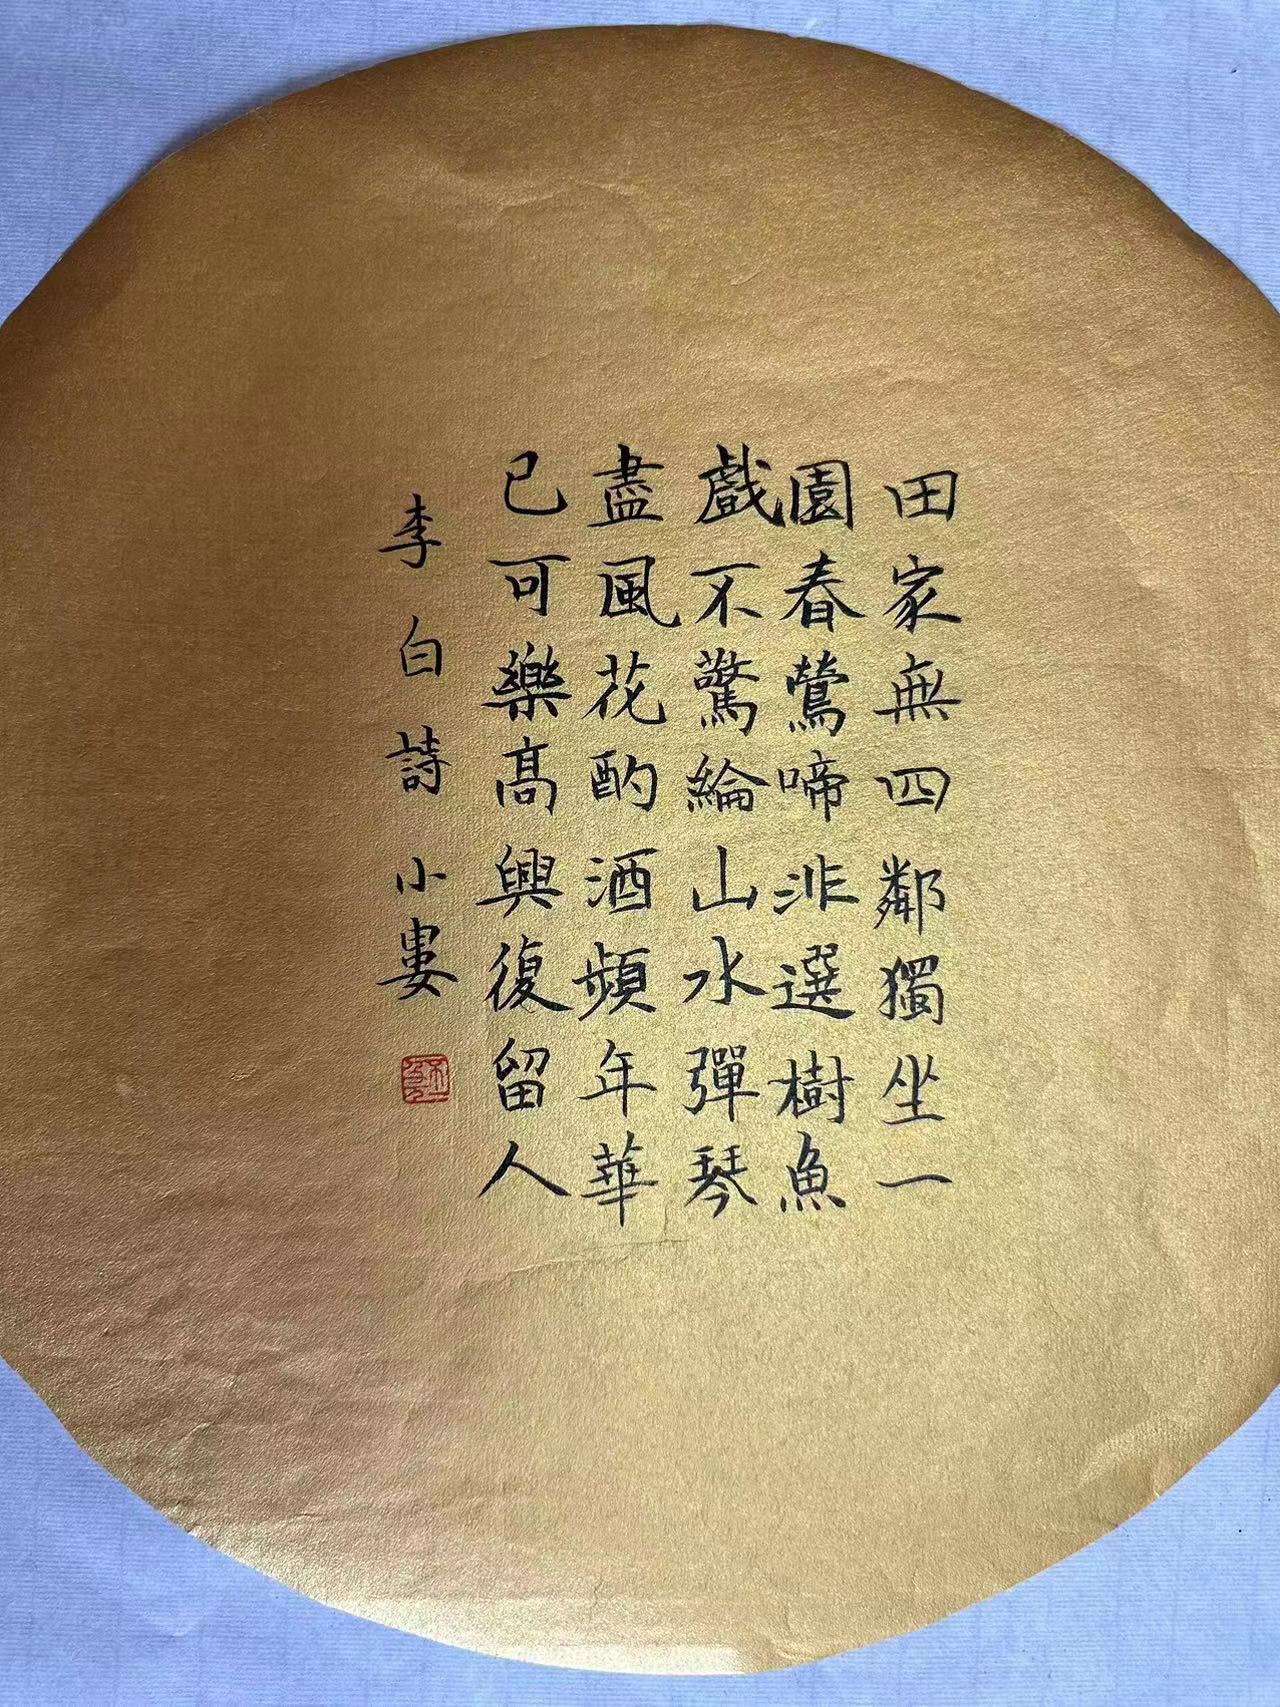 田家無四鄰獨坐一
園春鶯啼非選樹魚
戲不驚綸山水彈琴
盡風花酌酒頻年華
已可樂高興復留人
李白詩小婁